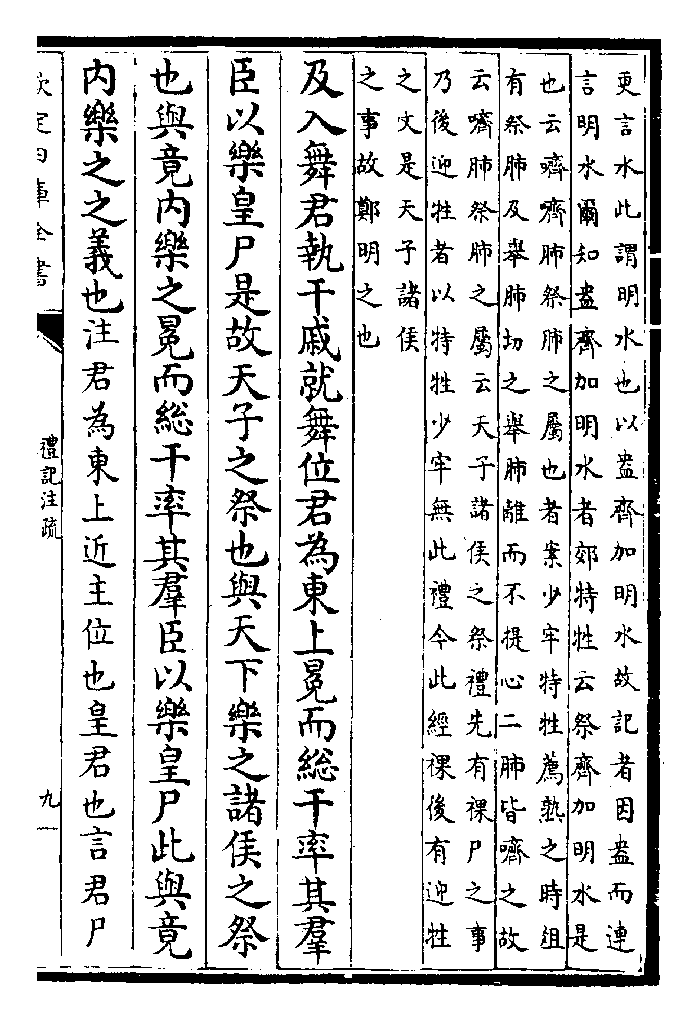 更言水此謂明水也以盎齊加明水故記者因盎而連
言明水爾知盎齊加明水者郊特牲云祭齊加明水是
也云嚌嚌肺祭肺之屬也者案少牢特牲薦熟之時俎
有祭肺及舉肺切之舉肺離而不提心二肺皆嚌之故
云嚌肺祭肺之屬云天子諸侯之祭禮先有祼尸之事
乃後迎牲者以特牲少牢無此禮今此經祼後有迎牲
之文是天子諸侯
之事故鄭明之也
及入舞君執干戚就舞位君為東上冕而總干率其羣
臣以樂皇尸是故天子之祭也與天下樂之諸侯之祭
也與竟內樂之冕而總干率其羣臣以樂皇尸此與竟
內樂之之義也注君為東上近主位也皇君也言君尸
欽定四庫全書
禮記注疏
九